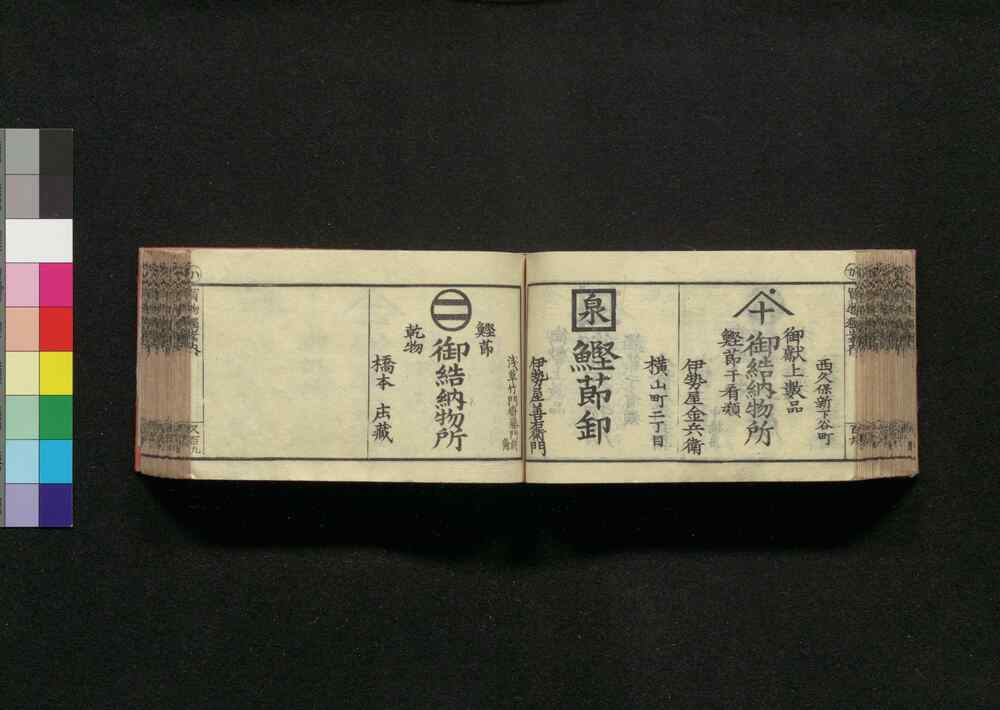 西久保新下谷町
御献上製品
十
御結納物所
鰹節干肴類
伊勢屋金兵衛
横山町二丁目
泉
鰹節卸
伊勢屋善右衛門
鰹節
二
御結納物所
乾物
橋本 庄蔵
又百九